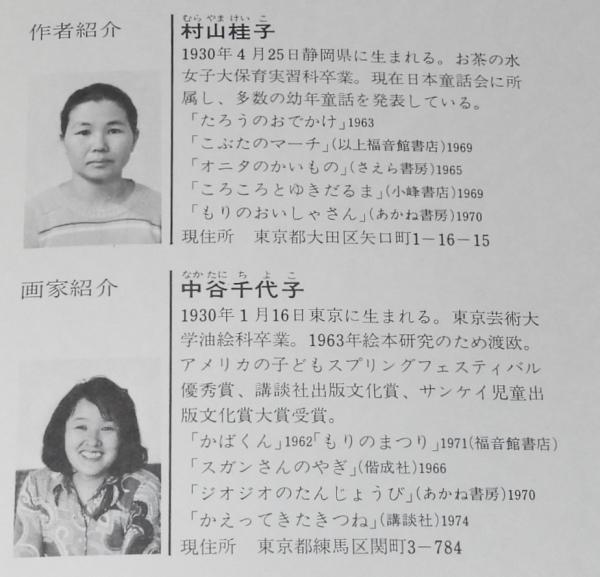 作者紹介
むらやまけいこ
村山桂子
1930年4月25日静岡県に生まれる。お茶の水
女子大保育実習科卒業。現在日本童話会に所
属し、多数の幼年童話を発表している。
「たろうのおでかけ」1963
「こぶたのマーチ」(以上福音館書店)1969
「オニタのかいもの」(さえら書房)1965
「ころころとゆきだるま」(小峰書店)1969
「もりのおいしゃさん」(あかね書房)1970
現住所 東京都大田区矢口町1−16−15
画家紹介
なかたにちよこ
中谷千代子
1930年1月16日東京に生まれる。東京芸術大
学油絵科卒業。1963年絵本研究のため渡欧。
アメリカの子どもスプリングフェスティバル
優秀賞、講談社出版文化賞、サンケイ児童出
版文化賞大賞受賞。
「かばくん」1962「もりのまつり」1971(福音館書店)
「スガンさんのやぎ」(偕成社)1966
「ジオジオのたんじょうび」(あかね書房)1970
「かえってきたきつね」(講談社)1974
現住所 東京都練馬区関町3−784